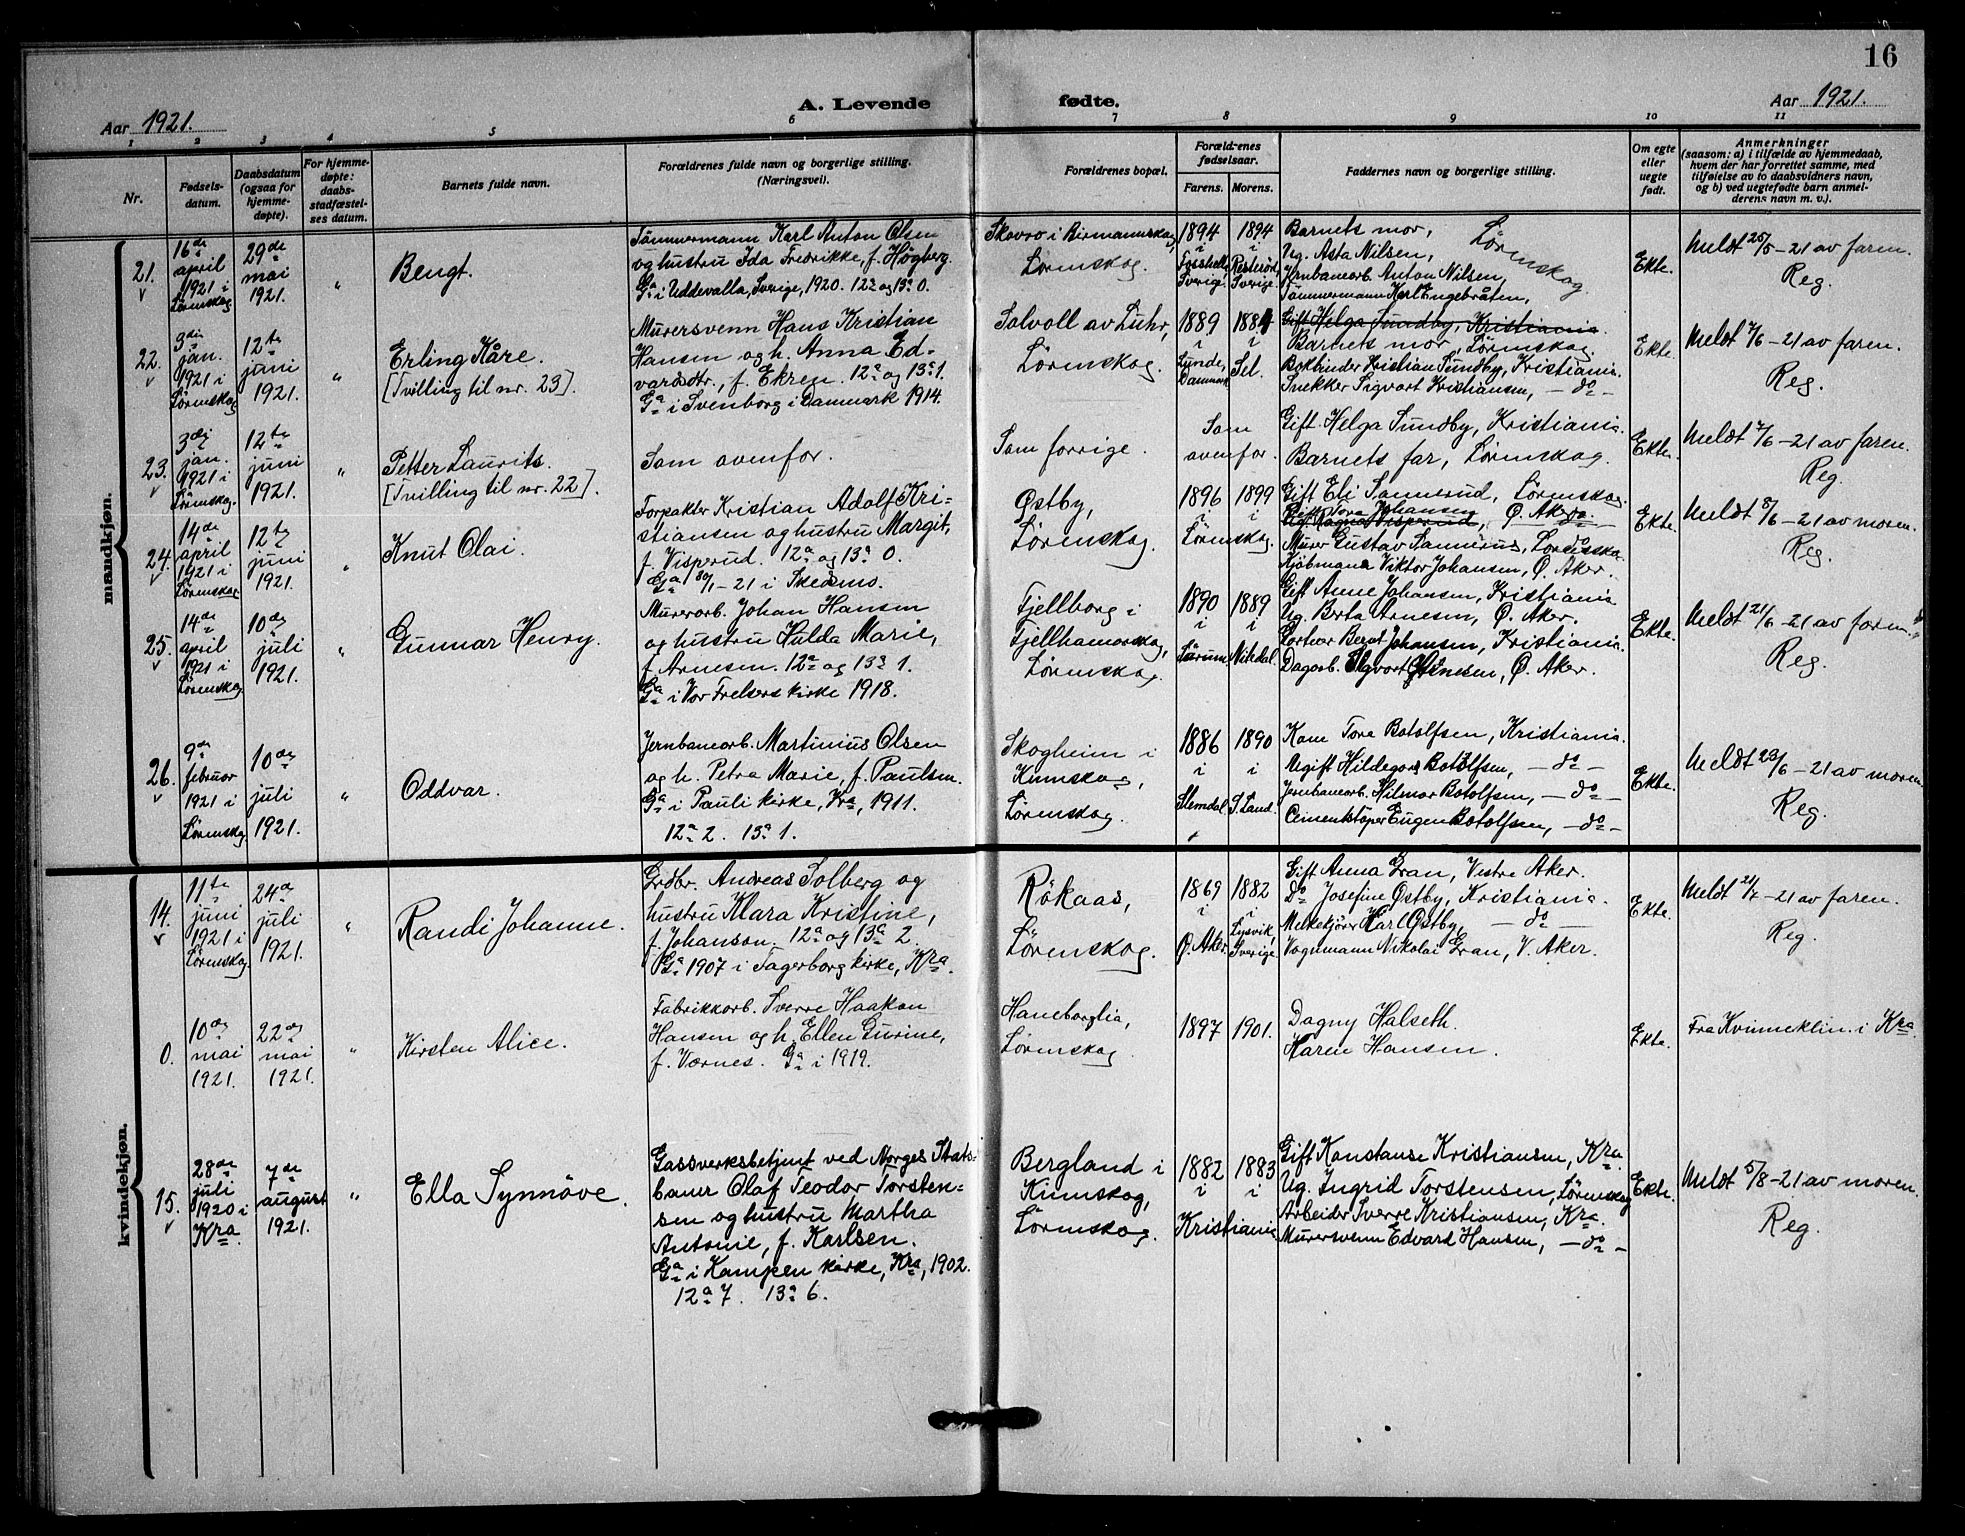 16
A. Levende fødte.
Aar 1921.
Aar 1921.
1 2 3 4 5 6 7 8 9 10 11
Nr.
Fødsels-
datum.
Daabsdatum
(ogsaa for
hjemme-
døpte).
For hjemme-
døpte:
daabs-
stadfæstel-
ses datum.
Barnets fulde navn.
Forældrenes fulde navn og borgerlige stilling.
(Næringsvei).
Forældrenes bopæl.
Forældrenes
fødselsaar.
Farens. Morens.
Faddernes navn og borgerlige stilling.
Om egte
eller
uegte
født.
Anmerkninger
(saasom: a) i tilfælde av hjemmedaab,
hvem der har forrettet samme, med
tilføielse av to daabsvidners navn,
og b) ved uegtefødte barn anmel-
derens navn m. v.).
mandkjøn.
21.
16de
april
1921 i
Lørenskog
29de
mai
1921.
"
Bengt.
Tömmermann Karl Anton Olsen
og hustru Ida Fredrikke, f. Högberg.
Ga i Uddevalla, Sverige, 1920. 12a og 13a 0.
Skovro i Birmannskog,
Lørenskog.
1894
i
Sverige.
1894
i
Sverige.
Barnets mor, Lørenskog.
Ug. Asta Nilsen,
Jernbanearb. Anton Nilsen,
Tömmermann Karl Engebråten,
Ekte.
Meldt 25/5 – 21 av faren.
Reg.
22.
3die
jan.
1921 i
Lørenskog
12te
juni
1921.
"
Erling Kåre.
[Tvilling til nr. 23].
Murersvenn Hans Kristian
Hansen og h. Anna Ed-
vardsdtr., f. Ekren. 12a og 13a 1.
Ga i Svenborg i Danmark 1914.
Solvoll av Luhr,
Lørenskog.
1889
i
Lunde,
Danmark
1884
i
Sel.
Gift Helga Sundby, Kristiania.
Barnets mor, Lørenskog
Bokbinder Kristian Sundby, Kristiania.
Snekker Sigvart Kristiansen, – do –
Ekte.
Meldt 7/6 – 21 av faren.
Reg.
23.
3die
jan.
1921 i
Lørenskog.
12te
juni
1921.
"
Petter Laurits.
[Tvilling til nr. 22].
Som ovenfor.
Som forrige.
Som
ovenfor.
Gift Helga Sundby, Kristiania.
Barnets far, Lørenskog.
Ekte.
Meldt 7/6 – 21 av faren.
Reg.
24.
14de
april
1921 i
Lørenskog
12te
juni
1921.
"
Knut Olai.
Forpakter Kristian Adolf Kri-
stiansen og hustru Margit,
f. Visperud. 12a og 13a 0.
Ga 30/1 – 21 i Skedsmo.
Østby,
Lørenskog.
1896 1899
i i
Lørenskog.
Gift Eli Sannerud, Lørenskog.
Gift Tora Johansen, Ø. Aker.
Ug. Ragna Visperud, – do –
Murer Gustav Sannerud, Lørenskog
Kjøbmann Viktor Johansen, Ø. Aker.
Ekte.
Meldt 8/6 – 21 av moren.
Reg.
25.
14de
april
1921 i
Lörenskog
10de
juli
1921.
"
Gunnar Henry.
Murerarb. Johan Hansen
og hustru Hulda Marie,
f. Arnesen. 12a og 13a 1.
Ga i Vor Frelsers kirke 1918.
Fjellborg i
Fjellhamarskog,
Lørenskog.
1890
i
Sørum
1889
i
Nitedal.
Gift Anne Johansen, Kristiania
Ug. Berta Arnesen, Ø. Aker.
Bernt Johansen, Kristiania.
Dagarb. Sigvart Arnesen, Ø. Aker.
Ekte.
Meldt 21/6 – 21 av faren.
Reg.
26.
9de
februar
1921 i
Lørenskog
10de
juli
1921.
"
Oddvar.
Jernbanearb. Martinius Olsen
og h. Petra Marie, f. Paulsen.
Ga i Pauli kirke, Kra, 1911.
12a 2. 13a 1.
Skogheim i
Kinnskog,
Lørenskog.
1886
i
Slemdal
1890
i
S. Land.
Kone Tora Botolfsen, Kristiania.
Ugift Hildegard Botolfsen, – do –
Jernbanearb. Hilmar Botolfsen, – do –
Cementstøper Eugen Botolfsen, – do –
Ekte.
Meldt 23/6 – 21 av moren.
Reg.
kvindekjøn.
14.
11te
juni
1921 i
Lörenskog.
24de
juli
1921.
"
Randi Johanne.
Grdbr. Andreas Solberg og
hustru Klara Kristine,
f. Johanson. 12a og 13a 2.
Ga 1907 i Fagerborg kirke, Kra.
Rökaas,
Lørenskog.
1869
i
Ø. Aker.
1882
i
Lysvik,
Sverige.
Gift Anna Gran, Vestre Aker.
Do Josefine Østby, Kristiania.
Melkekjører Karl Østby, – do –
Vognmann Nikolai Gran, V. Aker.
Ekte.
Meldt 21/7 – 21 av faren.
Reg.
0.
10de
mai
1921.
22de
mai
1921.
"
Kirsten Alice.
Fabrikkarb. Sverre Haakon
Hansen og h. Ellen Gurine,
f. Værnes. Ga i 1919.
Haneborglia,
Lørenskog.
1897 1901.
Dagny Halseth.
Karen Hansen.
Ekte.
Fra Kvinneklin. i Kra.
15.
28de
juli
1920 i
Kra.
7de
august
1921.
"
Ella Synnöve.
Gassverksbetjent ved Norges Stats-
baner Olaf Teodor Torsten-
sen og hustru Martha
Antonie, f. Karlsen.
Ga i Kampen kirke, Kra, 1902.
12a 7. 13a 6.
Bergland i
Kinnskog,
Lørenskog.
1882 1883
i i
Kristiania
Gift Konstanse Kristiansen, Kra.
Ug. Ingrid Torstensen, Lørenskog
Arbeider Sverre Kristiansen, Kra.
Murersvenn Edvard Hansen, – do –
Ekte.
Meldt 5/8 – 21 av moren.
Reg.